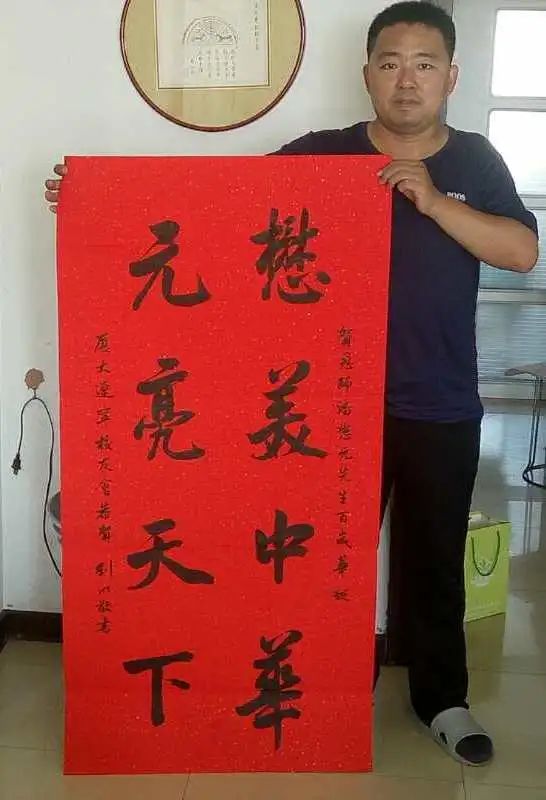 賀恩師潘懋元先生百歲華誕
懋美中華
元亮天下
厦大遼寧校友會恭賀 敬書